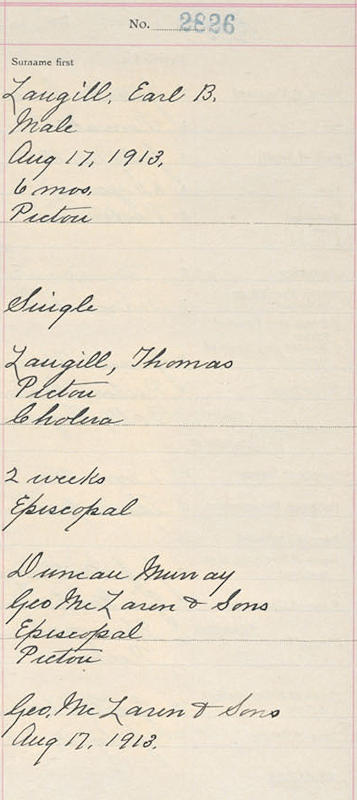 No. 2826
Surname first
Langill, Earl B.
Male
Aug 17, 1913.
6 mos.
Pictou
Single
Langill, Thomas
Pictou
Cholera
2 weeks
Episcopal
Duncan Murray
Geo Mc Laren & Sons
Episcopal
Pictou
Geo. Mc Laren & Sons
Aug 17, 1913.